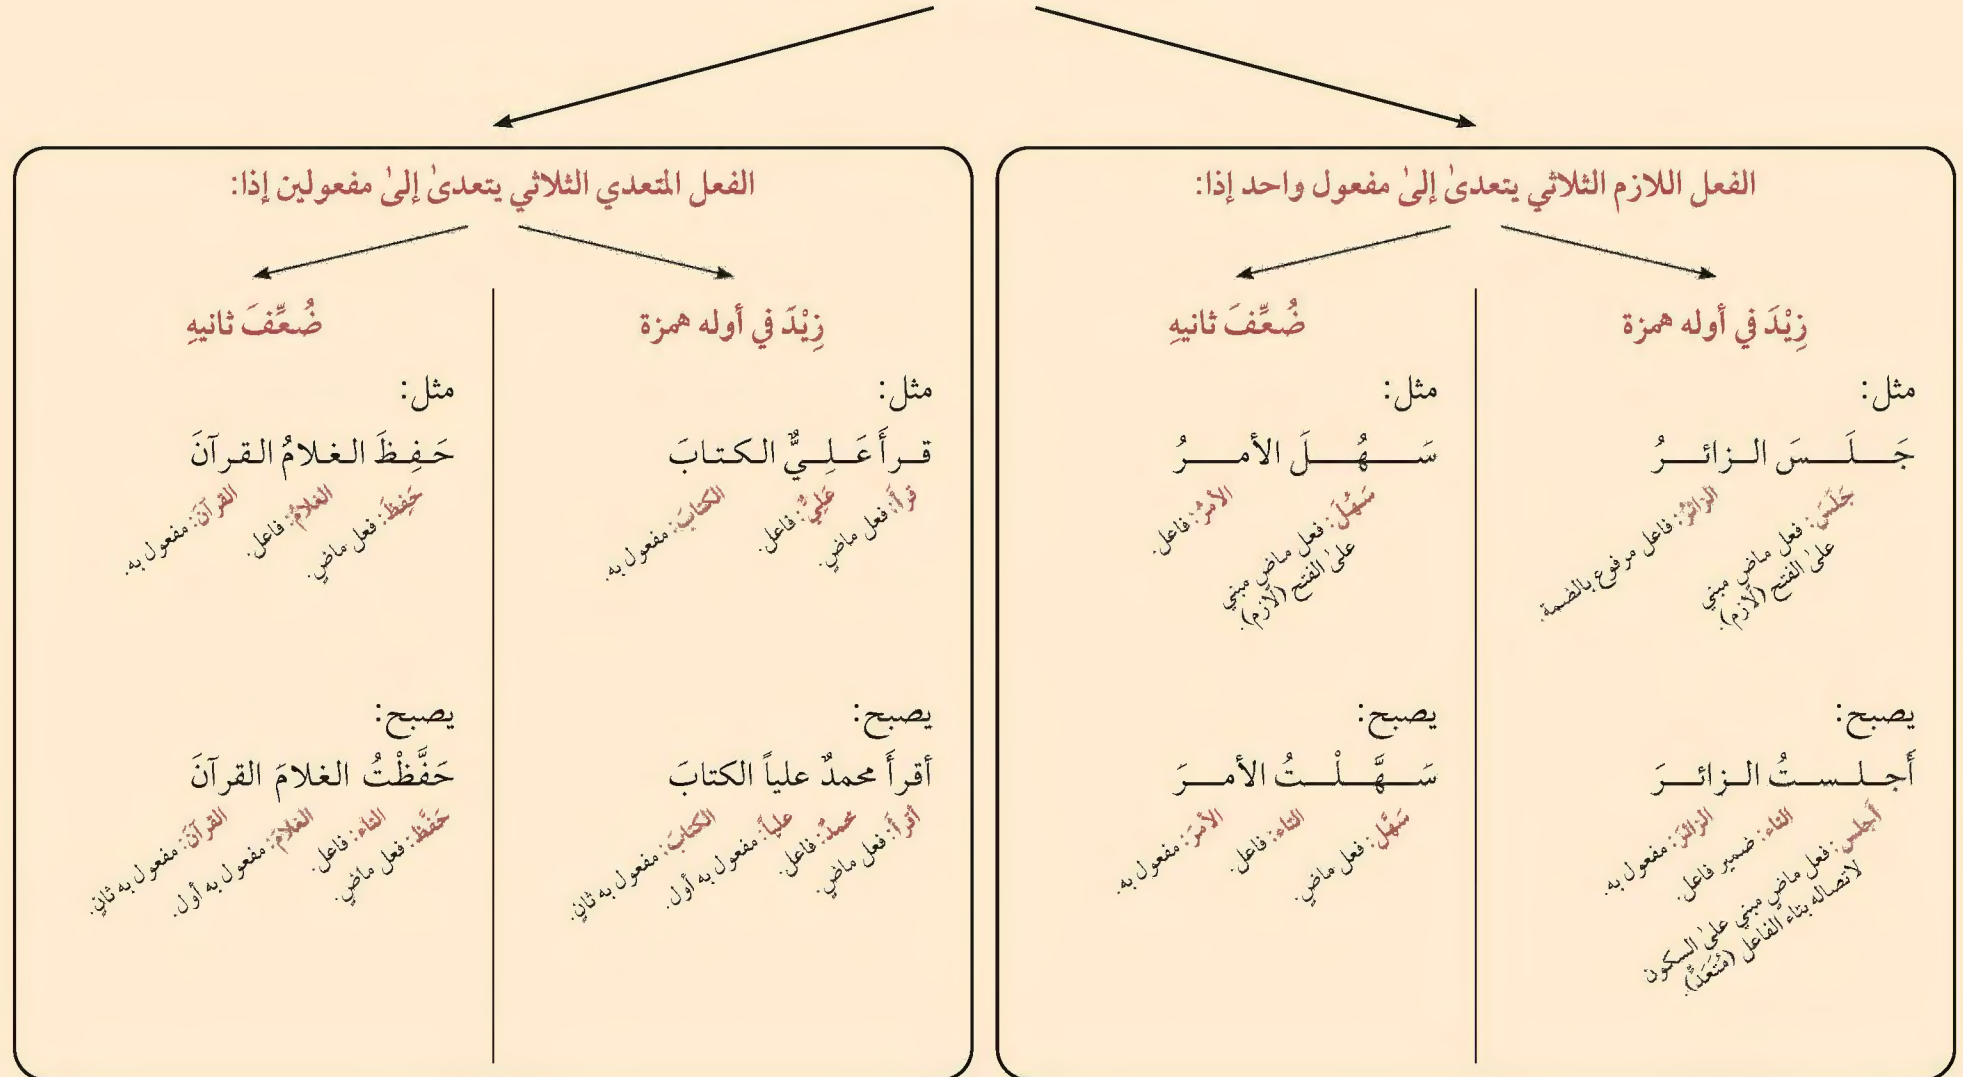 الفعل اللازم الثلاثي يتعدىٰ إلىٰ مفعول واحد إذا:
زِيْدَ في أوله همزة
مثل:
جَـــلَـــسَ الـــزائـــرُ
جَلَسَ: فعل ماضٍ مبني
علىٰ الفتح (لازم).
الزائرُ: فاعل مرفوع بالضمة.
يصبح:
أَجـلـسـتُ الـزائـرَ
أَجلس: فعل ماضٍ مبني علىٰ السكون
لاتصاله بتاء الفاعل (مُتَعَدٍّ).
التاء: ضمير فاعل.
الزائرَ: مفعول به.
ضُعِّفَ ثانيهِ
مثل:
سَـــهُـــلَ الأمـــرُ
سَهُلَ: فعل ماضٍ مبني
علىٰ الفتح (لازم).
الأمرُ: فاعل.
يصبح:
سَـــهَّـــلْـــتُ الأمـــرَ
سَهَّل: فعل ماضٍ.
التاء: فاعل.
الأمرَ: مفعول به.
الفعل المتعدي الثلاثي يتعدىٰ إلىٰ مفعولين إذا:
زِيْدَ في أوله همزة
مثل:
قـرأَ عَـلِـيٌّ الـكـتـابَ
قرأَ: فعل ماضٍ.
عَلِيٌّ: فاعل.
الكتابَ: مفعول به.
يصبح:
أقرأَ محمدٌ علياً الكتابَ
أقرأَ: فعل ماضٍ.
محمدٌ: فاعل.
علياً: مفعول به أول.
الكتابَ: مفعول به ثانٍ.
ضُعِّفَ ثانيهِ
مثل:
حَـفِـظَ الـغـلامُ الـقـرآنَ
حَفِظَ: فعل ماضٍ.
الغلامُ: فاعل.
القرآنَ: مفعول به.
يصبح:
حَفَّظْتُ الغلامَ القرآنَ
حَفَّظ: فعل ماضٍ.
التاء: فاعل.
الغلامَ: مفعول به أول.
القرآنَ: مفعول به ثانٍ.